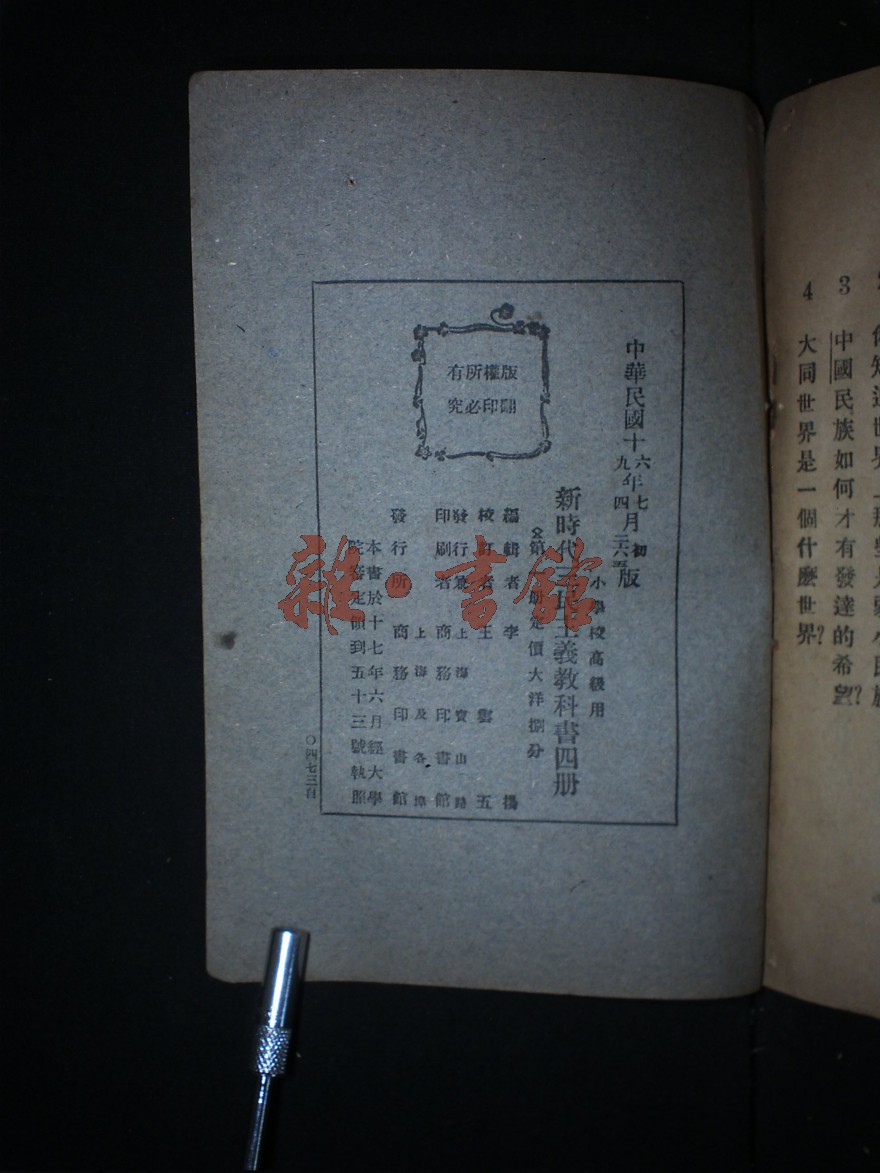 4 大同世界是一個什麽世界?
3 中國民族如何才有發達的希望?
中華民國十六年七月初版
九年四
小學校高級用
新時代三民主義教科書四册
定價大洋捌分
編輯者 李
校訂者 王雲五
發行兼 上海寶山路
印刷者 商務印書館
上海及各埠
發行所 商務印書館
本書於十七年六月經大學
院審定領到五十三號執照
版權所有
翻印必究
雜·書館